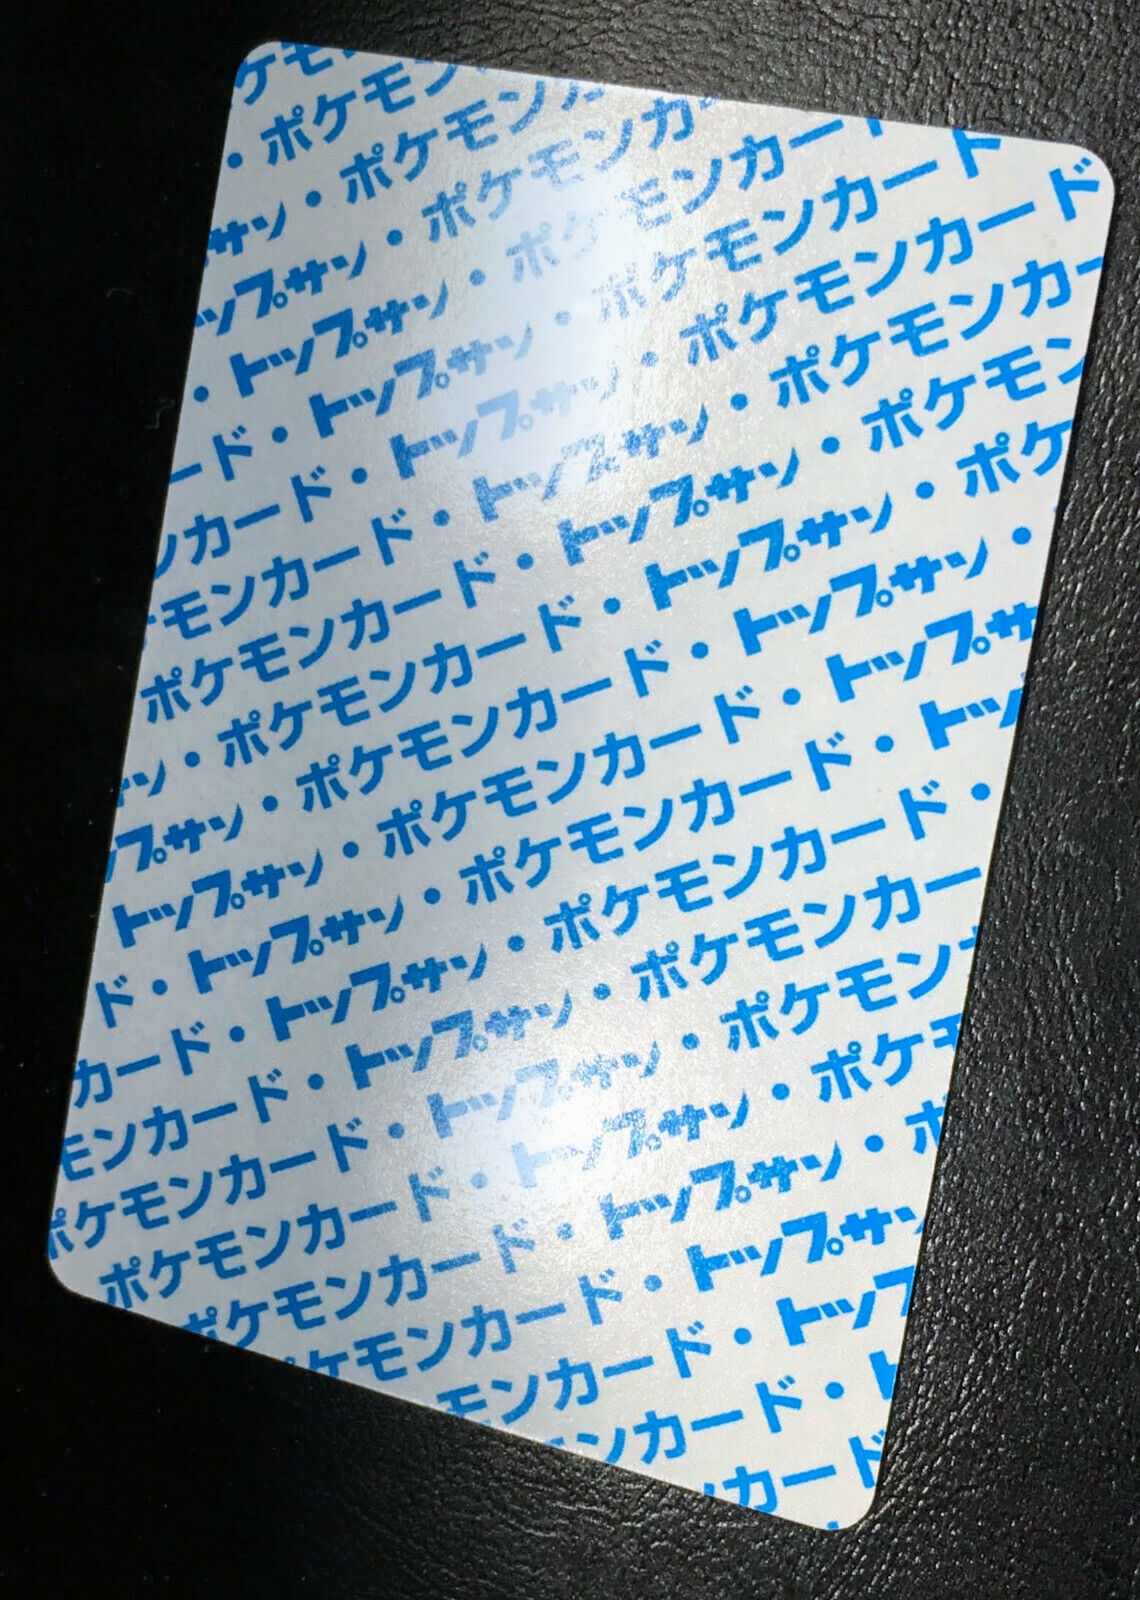 ケモ
・ポケモン
サン・ポケモンカ
ップサン・ポケモンカ
・トップサン・ポケモンカー
ード・トップサン・ポケモンカード
ンカード・トップサン・ポケモンカード
モンカード・トップサン・ポケモンカー
ポケモンカード・トップサン・ポケモン
ン・ポケモンカード・トップサン・ポケ
プサン・ポケモンカード・トップサン・
トップサン・ポケモンカード・トップサ
ド・トップサン・ポケモンカード・トッ
カード・トップサン・ポケモンカード・
モンカード・トップサン・ポケモンカー
ポケモンカード・トップサン・ポケモン
ポケモンカード・トップサン・ポケ
ポケモンカード・トップサン・ポ
ケモンカード・トップサン
モンカード・トップ
ンカード・ト
カード